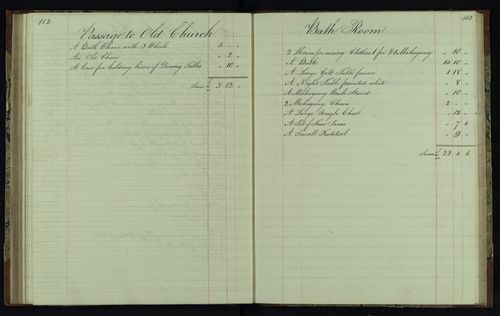 112
Passage to Old Church
A Bath Chair with 3 Wheels 5 " "
An Old Chair " 2 "
A Case for holding leaves of Dining Tables " 10 "
Sum £ 5 12 "
113
Bath Room
2 Horses for airing Clothes 1 fir & 1 Mahogany " 10 "
A Bath 15 10 "
A Large Gilt Table frame 1 18 "
A Night Table painted white " 8 "
A Mahogany Wash Stand " 10 "
2 Mahogany Chairs 2 " "
A Large Rough Chest " 12 "
A Set of Fire Irons " 7 6
A Small Footstool " 9 "
Sum £ 22 4 6